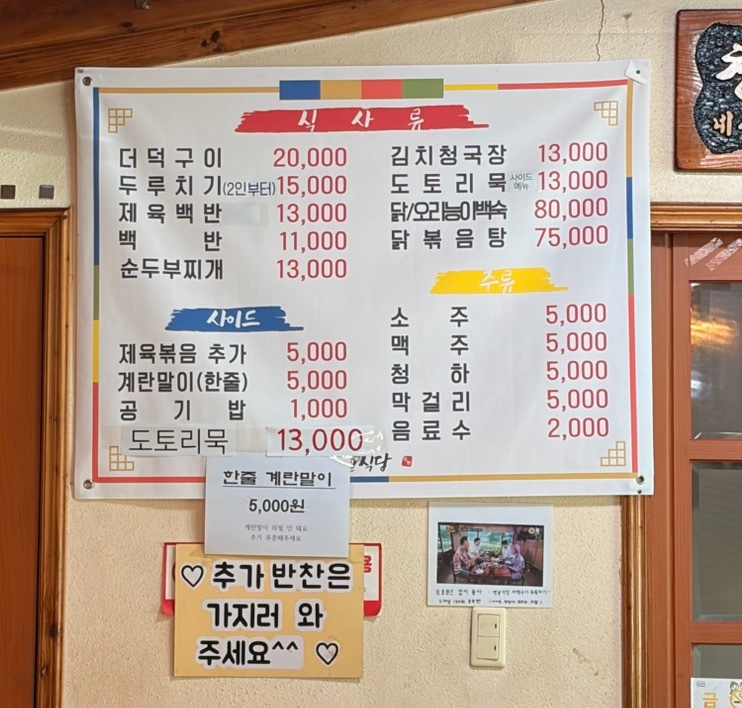 식 사 류
더덕구이 20,000
두루치기(2인부터) 15,000
제육백반 13,000
백 반 11,000
순두부찌개 13,000
김치청국장 13,000
도토리묵 사이드메뉴 13,000
닭/오리능이백숙 80,000
닭볶음탕 75,000
사이드
제육볶음 추가 5,000
계란말이(한줄) 5,000
공 기 밥 1,000
도토리묵 13,000
주류
소 주 5,000
맥 주 5,000
청 하 5,000
막걸리 5,000
음료수 2,000
식당
한줄 계란말이
5,000원
계란말이 리필 안 돼요
추가 주문해주세요.
♡ 추가 반찬은
가지러 와
주세요^^ ♡
금